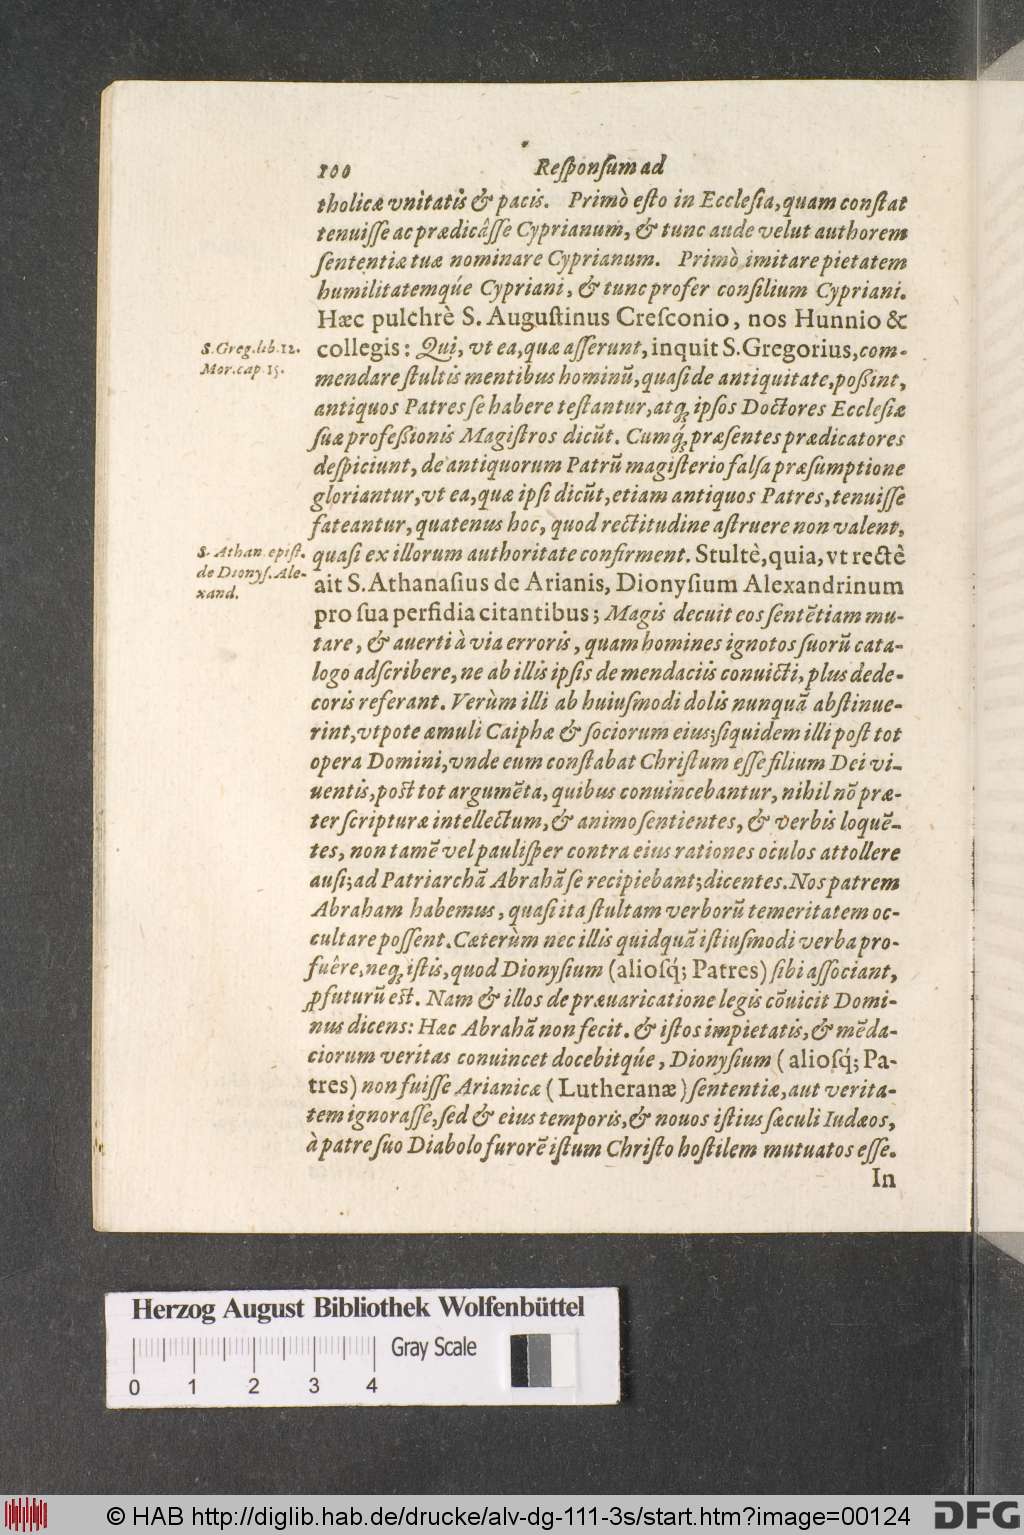 100 Reſponſum ad
tholicæ vnitatis & pacis. Primò eſto in Eccleſia, quam conſtat
tenuiſſe ac prædicâſſe Cyprianum, & tunc aude velut authorem
ſententiæ tuæ nominare Cyprianum. Primò imitare pietatem
humilitatemq́ue Cypriani, & tunc profer conſilium Cypriani.
Hæc pulchrè S. Auguſtinus Creſconio, nos Hunnio &
S. Greg. lib. 12.
Mor. cap. 15.
collegis: Qui, vt ea, quæ aſſerunt, inquit S. Gregorius, com-
mendare ſtultis mentibus hominũ, quaſi de antiquitate, poßint,
antiquos Patres ſe habere teſtantur, atq; ipſos Doctores Eccleſiæ
ſuæ profeßionis Magiſtros dicũt. Cumq́; præſentes prædicatores
deſpiciunt, de antiquorum Patrũ magiſterio falſa præſumptione
gloriantur, vt ea, quæ ipſi dicũt, etiam antiquos Patres, tenuiſſe
fateantur, quatenus hoc, quod rectitudine aſtruere non valent,
S. Athan. epiſt.
de Dionyſ. Ale-
xand.
quaſi ex illorum authoritate confirment. Stultè, quia, vt rectè
ait S. Athanaſius de Arianis, Dionyſium Alexandrinum
pro ſua perfidia citantibus; Magis decuit eos ſentẽtiam mu-
tare, & auerti à via erroris, quam homines ignotos ſuorũ cata-
logo adſcribere, ne ab illis ipſis de mendaciis conuicti, plus dede-
coris referant. Verùm illi ab huiuſmodi dolis nunquã abſtinue-
rint, vtpote æmuli Caiphæ & ſociorum eius; ſiquidem illi poſt tot
opera Domini, vnde eum conſtabat Chriſtum eſſe filium Dei vi-
uentis, poſt tot argumẽta, quibus conuincebantur, nihil nõ præ-
ter ſcripturæ intellectum, & animo ſentientes, & verbis loquẽ-
tes, non tamẽ vel pauliſper contra eius rationes oculos attollere
auſi; ad Patriarchã Abrahã ſe recipiebant; dicentes. Nos patrem
Abraham habemus, quaſi ita ſtultam verborũ temeritatem oc-
cultare poſſent. Cæterùm nec illis quidquã iſtiuſmodi verba pro-
fuêre, neq; iſtis, quod Dionyſium (alioſq́; Patres) ſibi aſſociant,
ꝓfuturũ eſt. Nam & illos de præuaricatione legis cõuicit Domi-
nus dicens: Hæc Abrahã non fecit. & iſtos impietatis, & mẽda-
ciorum veritas conuincet docebitq́ue, Dionyſium (alioſq́; Pa-
tres) non fuiſſe Arianicæ (Lutheranæ) ſententiæ, aut verita-
tem ignoraſſe, ſed & eius temporis, & nouos iſtius ſæculi Iudæos,
à patre ſuo Diabolo furorẽ iſtum Chriſto hoſtilem mutuatos eſſe.
In
Herzog August Bibliothek Wolfenbüttel
Gray Scale
0 1 2 3 4
© HAB http://diglib.hab.de/drucke/alv-dg-111-3s/start.htm?image=00124
DFG